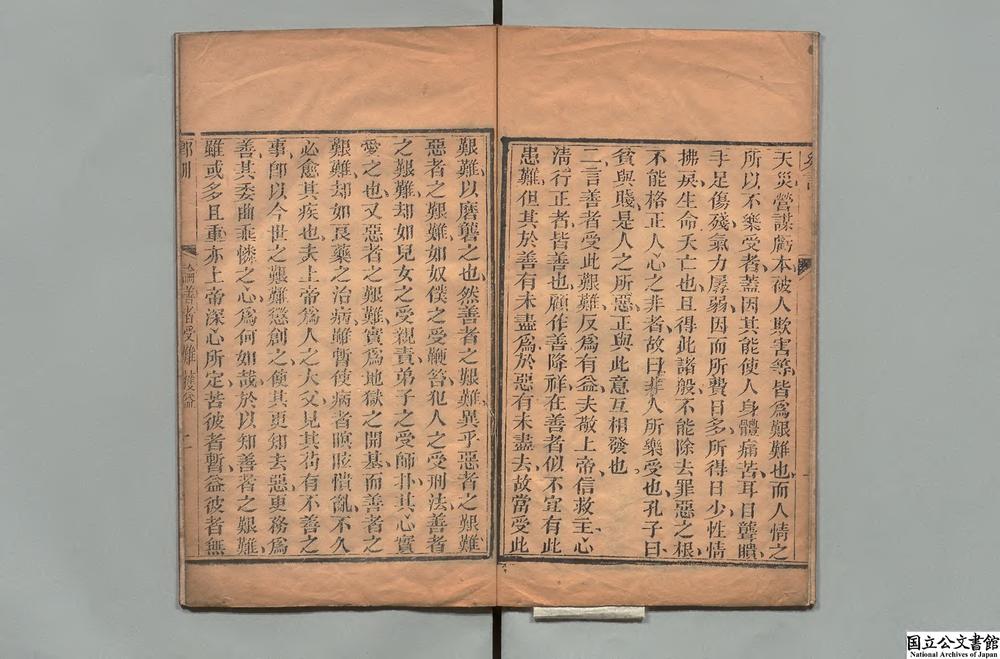 天災營謀虧本破人欺害等皆爲艱難也而人情之
所以不樂受者蓋因其能使人身體痛苦耳目聾瞶
手足傷殘氣力孱弱因而所費日多所得日少性情
拂戾生命夭亡也且得此諸般不能除去罪惡之根
不能格正人心之非者故曰非人所樂受也孔子曰
貧與賤是人之所惡正與此意互相發也
二言善者受此艱難反爲有益夫敬上帝信救主心
淸行正者皆善也顧作善降祥在善者似不宜有此
患難但其於善有未盡爲於惡有未盡去故當受此
艱難以磨礱之也然善者之艱難異乎惡者之艱難
惡者之艱難如奴僕之受鞭笞犯人之受刑法善者
之艱難却如兒女之受親責弟子之受師扑其心實
愛之也又惡者之艱難實爲地獄之開基而善者之
艱難却如良藥之治病雖暫使病者瞑眩憒亂不久
必愈其疾也夫上帝爲人之大父見其苟有不善之
事卽以今世之艱難懲創之使其更知去惡更務爲
善其委曲乖憐之心爲何如哉於以知善者之艱難
雖或多且重亦上帝深心所定苦彼者暫益彼者無
論善者受難獲益 二
国立公文書館
National Archives of Japan